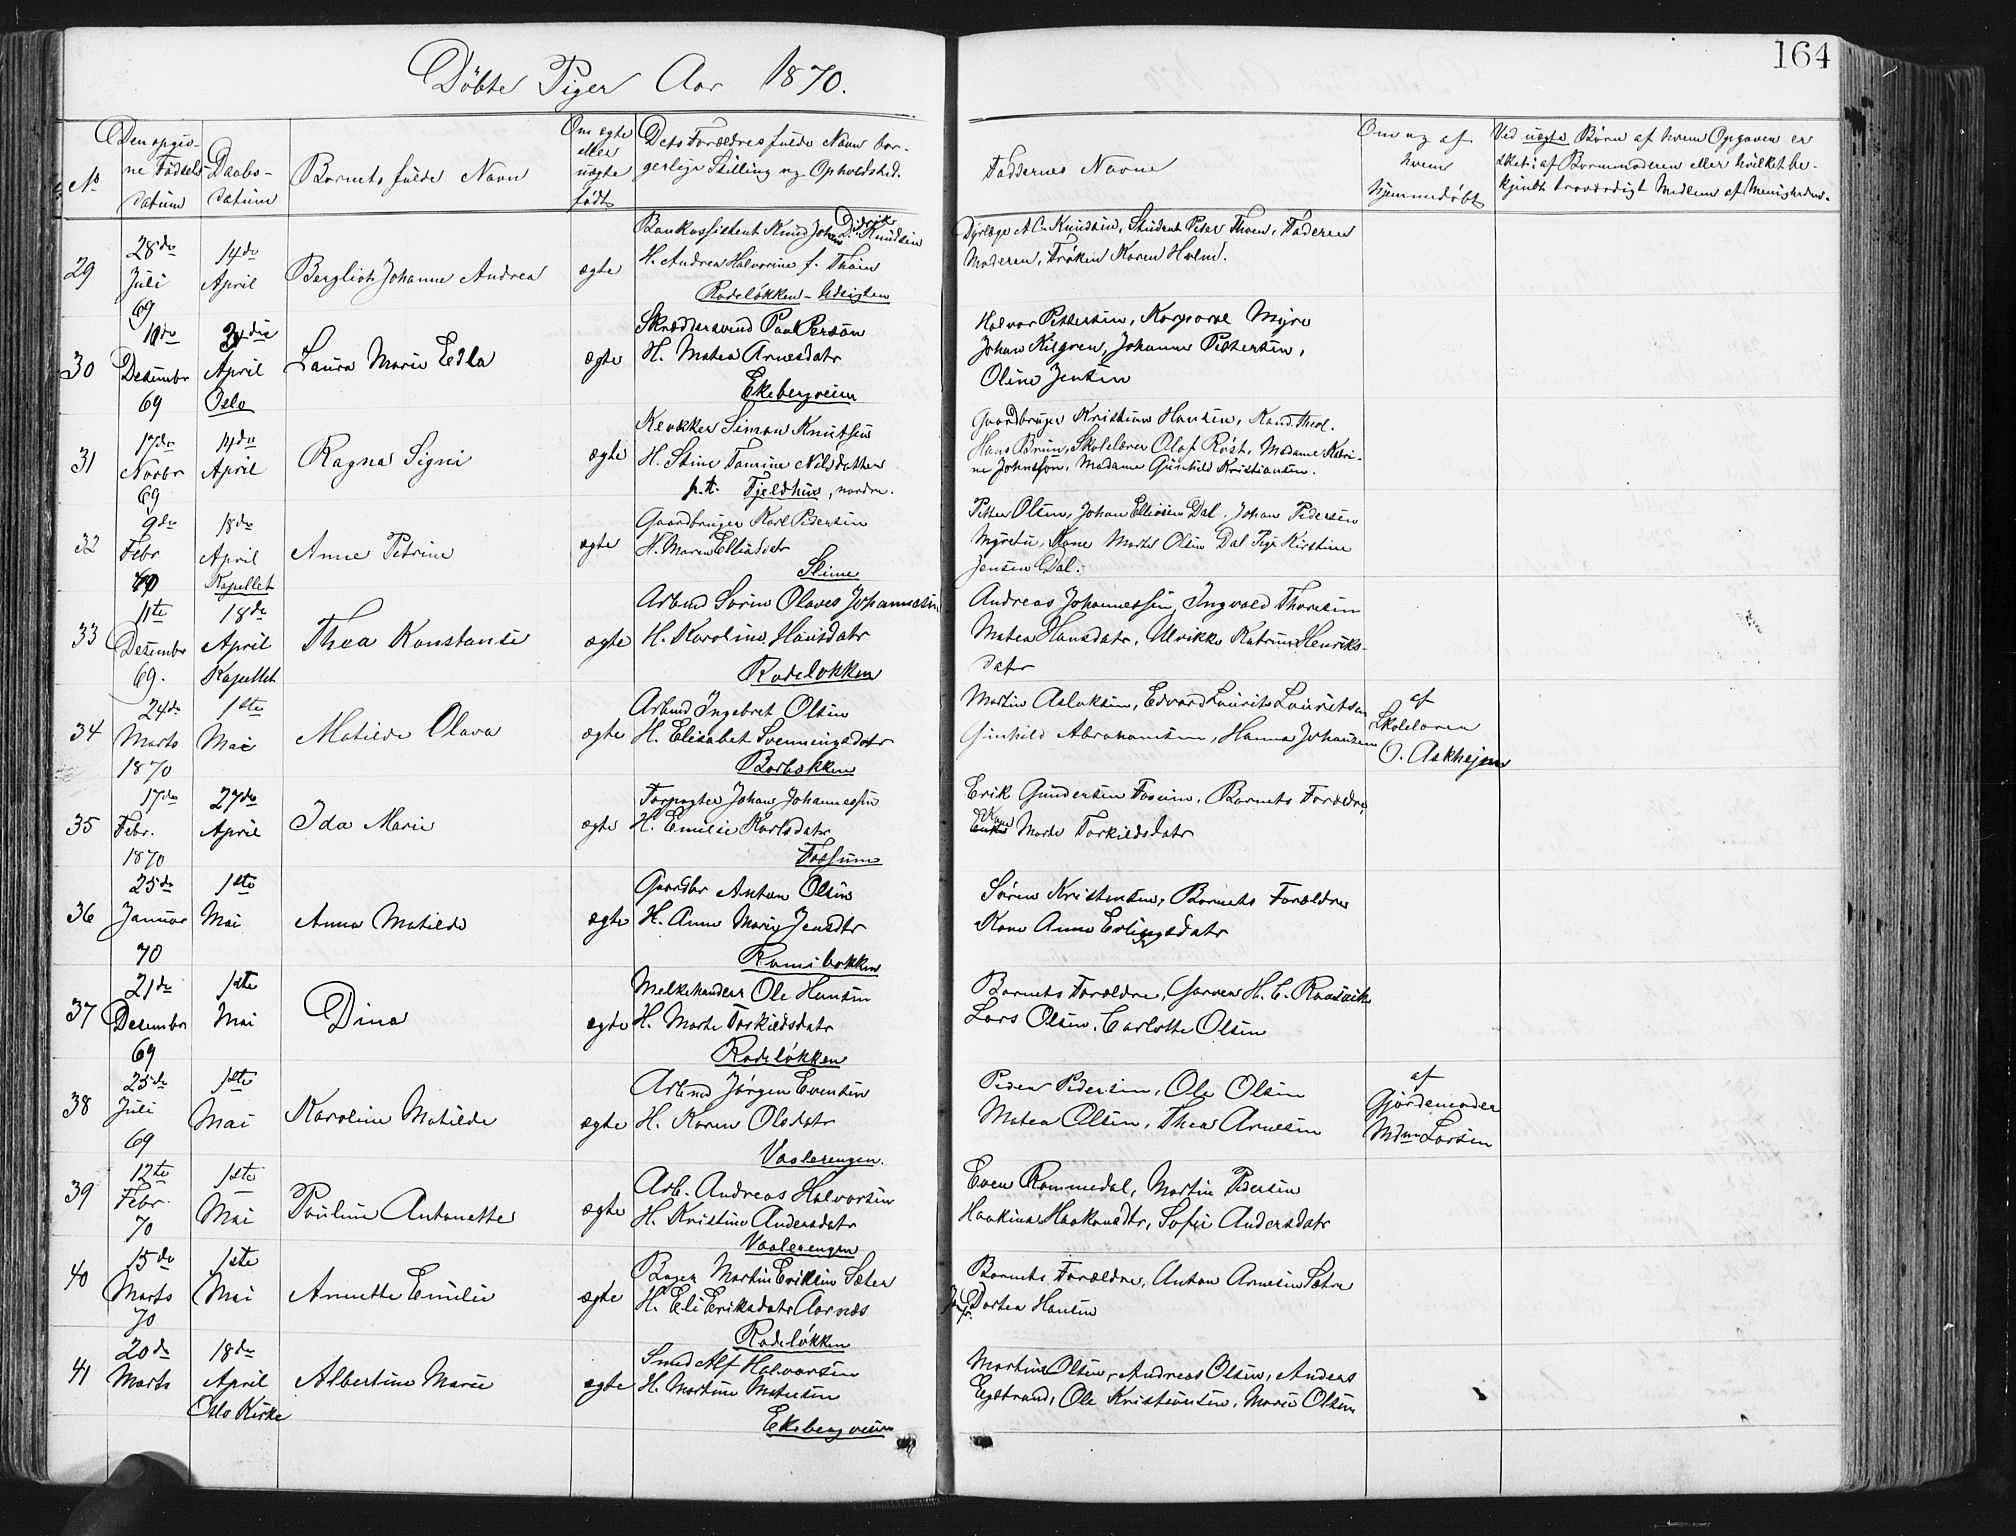 164
Döbte Piger Aar 1870.
No
Den opgiv-
ne Fødsels
datum
Daabs-
datum
Barnets fulde Navn
Om ægte
eller
uægte
født
Dets Forældres fulde Navn bor-
gerlige Stilling og Opholdsted.
Faddernes Navne
Om og af
hvem
hjemmedøbt
Ved uægte Børn af hvem Opgaven er
sket: af Barnemoderen eller hvilket be-
kjendt troværdigt Medlem af Menigheden.
29
28de
Juli
69
14de
April
Bergliot Johanne Andrea
ægte
Bankassistent Knud Johan Didrik Knudsen
H. Andrea Halvorine f. Thoen
Rodeløkken - Udsigten
Dyrlæge A C. Knudsen, Student Peter Thoen, Faderen
Moderen, Frøken Karen Holm.
30
10de
Desember
69
April
Oslo
Laura Marie Edla
ægte
Skræddersvend Paul Persøn
H. Matea Arnesdatr
Ekebergveien
Halvor Pettersen, Korporal Myre
Johan Kilgren, Johanne Pettersen,
Oline Jensen
31
17de
Novbr
69
14de
April
Ragna Signi
ægte
Simon Knutsen
H. Stine Tomine Nilsdatter
p.t. Fjeldhus, nordre.
Gaardbruger Kristian Hansen, Kand. Theol.
Hans Bruun, Skolelærer Olaf Røst, Madame Katri-
ne Johnsson, Madame Gunhild Kristiansen.
32
9de
Febr
18de
April
Kapellet
Anne Petrine
ægte
Gaardbruger Karl Pedersen
H. Maren Elliasdatr
Slime
Petter Olsen, Johan Elliesen Dal. Johan Pedersen
Kone Marte Olsen Dal Pige Kirstine
Jensen Dal.
33
11te
Desember
69.
18de
April
Kapellet
Thea Konstanse
ægte
Arbmd Søren Olaves Johannesen
H. Karoline Hansdatr
Rodeløkken
Andreas Johannessen, Ingvald Thoresen
Matea Hansdatr, Ulrikke Katrine Henriks-
datr
34
24de
Marts
1870
1ste
Mai
Matilde Olava
ægte
Arbmd Ingebret Olsen
H. Elisabet Svenningsdatr
Barbakken
Martin Aslaksen, Edvard Laurits Lauritsen
Gunhild Abrahamsen, Hanna Johansen
af
Skolelærer
O. Askhejm
35
17de
Febr.
1870
27de
April
Ida Marie
ægte
Forpagter Johan Johannessen
H. Emilie Karlsdatr
Fossum
Erik Gundersen Fossum, Barnets Forældre,
Kone Marte Torkildsdatr
36
25de
Januar
70
1ste
Mai
Anna Matilde
ægte
Gaardbr Anton Olsen
H. Anne Marie Jensdtr
Søren Kristensen, Barnets Forældre
Kone Anne Erlingsdatr
37
21de
Desember
69
1ste
Mai
Dina
ægte
Melkehandler Ole Hansen
H. Marte Torkildsdatr
Rodeløkken
Barnets Forældre, Garver H. C.
Lars Olsen, Carlotte Olsen
38
25de
Juli
69
1ste
Mai
Karoline Matilde
ægte
Arbmd Jørgen Evensen
H. Karen Olsdatr
Vaalerengen.
Peder Pedersen, Ole Olsen
Matea Olsen, Thea Arnesen
af
Gjordemoder
Mdm Larsen
39
12te
Febr.
70
1ste
Mai
Pauline Antonette
ægte
Arb. Andreas Halvorsen
H. Kristine Andersdatr
Vaalerengen
Even Rommedal, Martin Pedersen
Haakina Haakonsdtr, Sofie Andersdatr
40
15de
Marts
70
1ste
Mai
Annette Emilie
ægte
Bager Martin Eriksen Sæter
H. Eli Eriksdatr Aarnæs
Rodeløkken
Barnets Forældre, Anton Arnesen Sætre
Dortea Hansen
41
20de
Marts
18de
April
Oslo Kirke
Albertine Marie
ægte
Smed Alf Halvorsen
H. Martine Matisen
Ekebergveien
Martinus Olsen, Andreas Olsen, Anders
Egstrand, Ole Kristensen, Marie Olsen